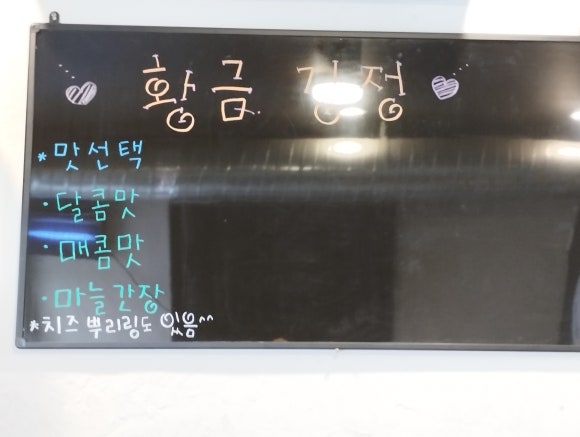 황금
*맛선택
·달콤맛
·매콤맛
·마늘간장
*치즈 뿌리링도 있음^^